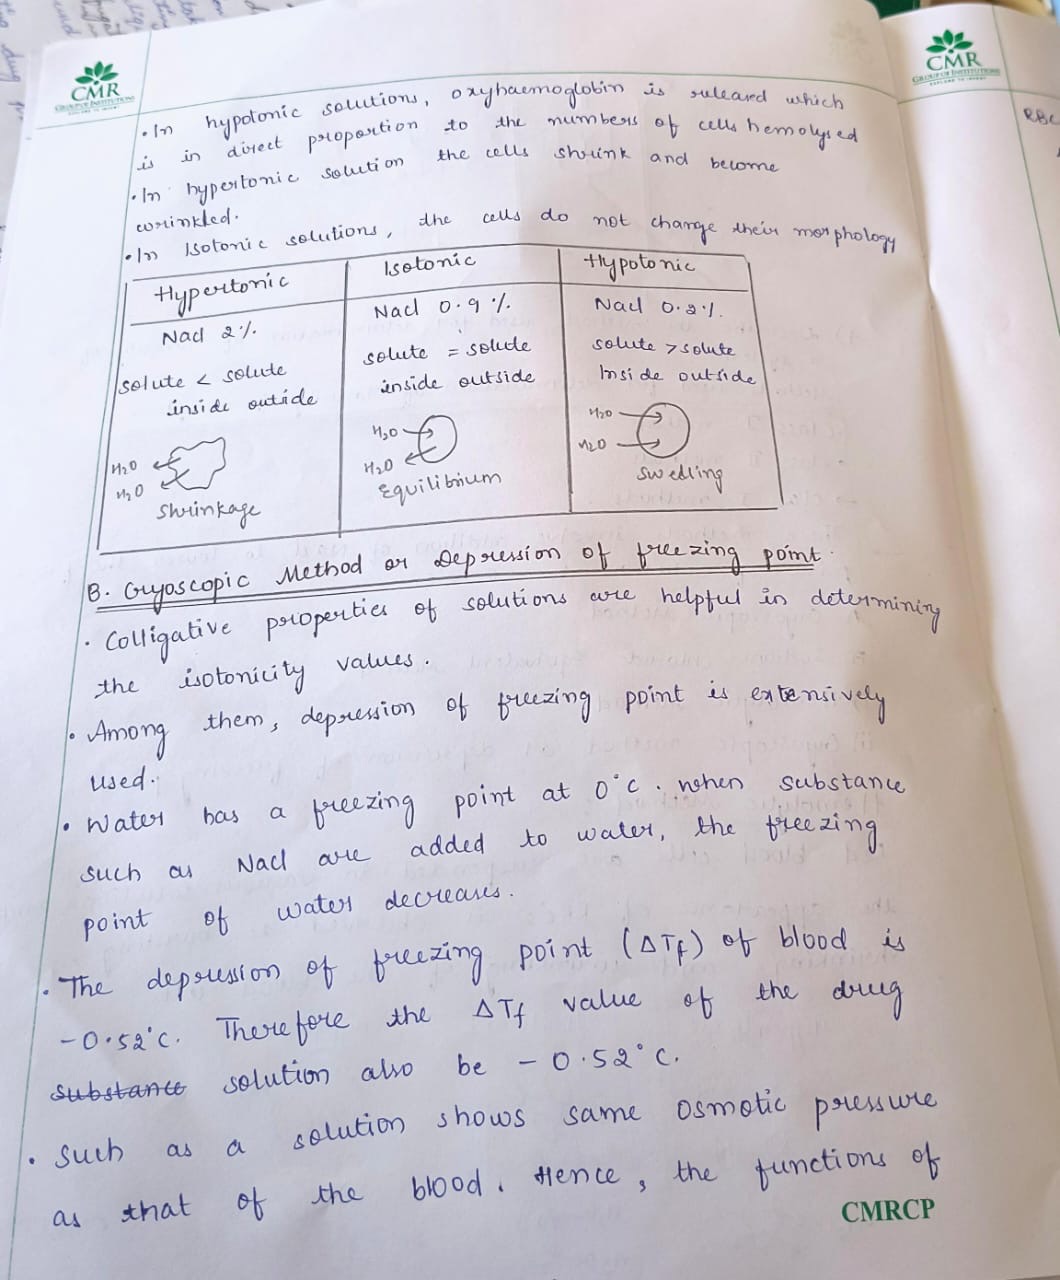 CMR
GROUP OF INSTITUTIONS
EXPLORE TO INVENT
CMR
GROUP OF INSTITUTIONS
EXPLORE TO INVENT
RBC
• In hypotonic solutions, oxyhaemoglobin is released which
is in direct proportion to the numbers of cells hemolysed
• In hypertonic solution the cells shrink and become
wrinkled.
• In Isotonic solutions, the cells do not change their morphology
Hypertonic Isotonic Hypotonic
Nacl 2% Nacl 0.9 % Nacl 0.2%.
solute < solute solute = solute solute > solute
inside outside inside outside Inside outside
H2O H2O H2O
H2O H2O H2O
Shrinkage Equilibrium Swelling
B. Cryoscopic Method or Depression of freezing point
• Colligative properties of solutions are helpful in determining
the isotonicity values.
• Among them, depression of freezing point is extensively
used.
• Water has a freezing point at 0°C. when substance
such as Nacl are added to water, the freezing
point of water decreases.
• The depression of freezing point (ΔTf) of blood is
-0.52°C. Therefore the ΔTf value of the drug
substance solution also be - 0.52°C.
• Such as a solution shows same osmotic pressure
as that of the blood. Hence, the functions of
CMRCP